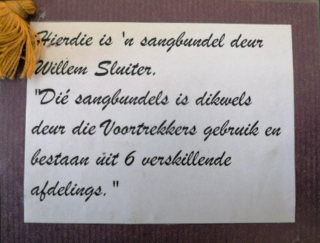 Hierdie is 'n sangbundel deur
Willem Sluiter.
"Dié sangbundels is dikwels
deur die Voortrekkers gebruik en
bestaan uit 6 verskillende
afdelings."